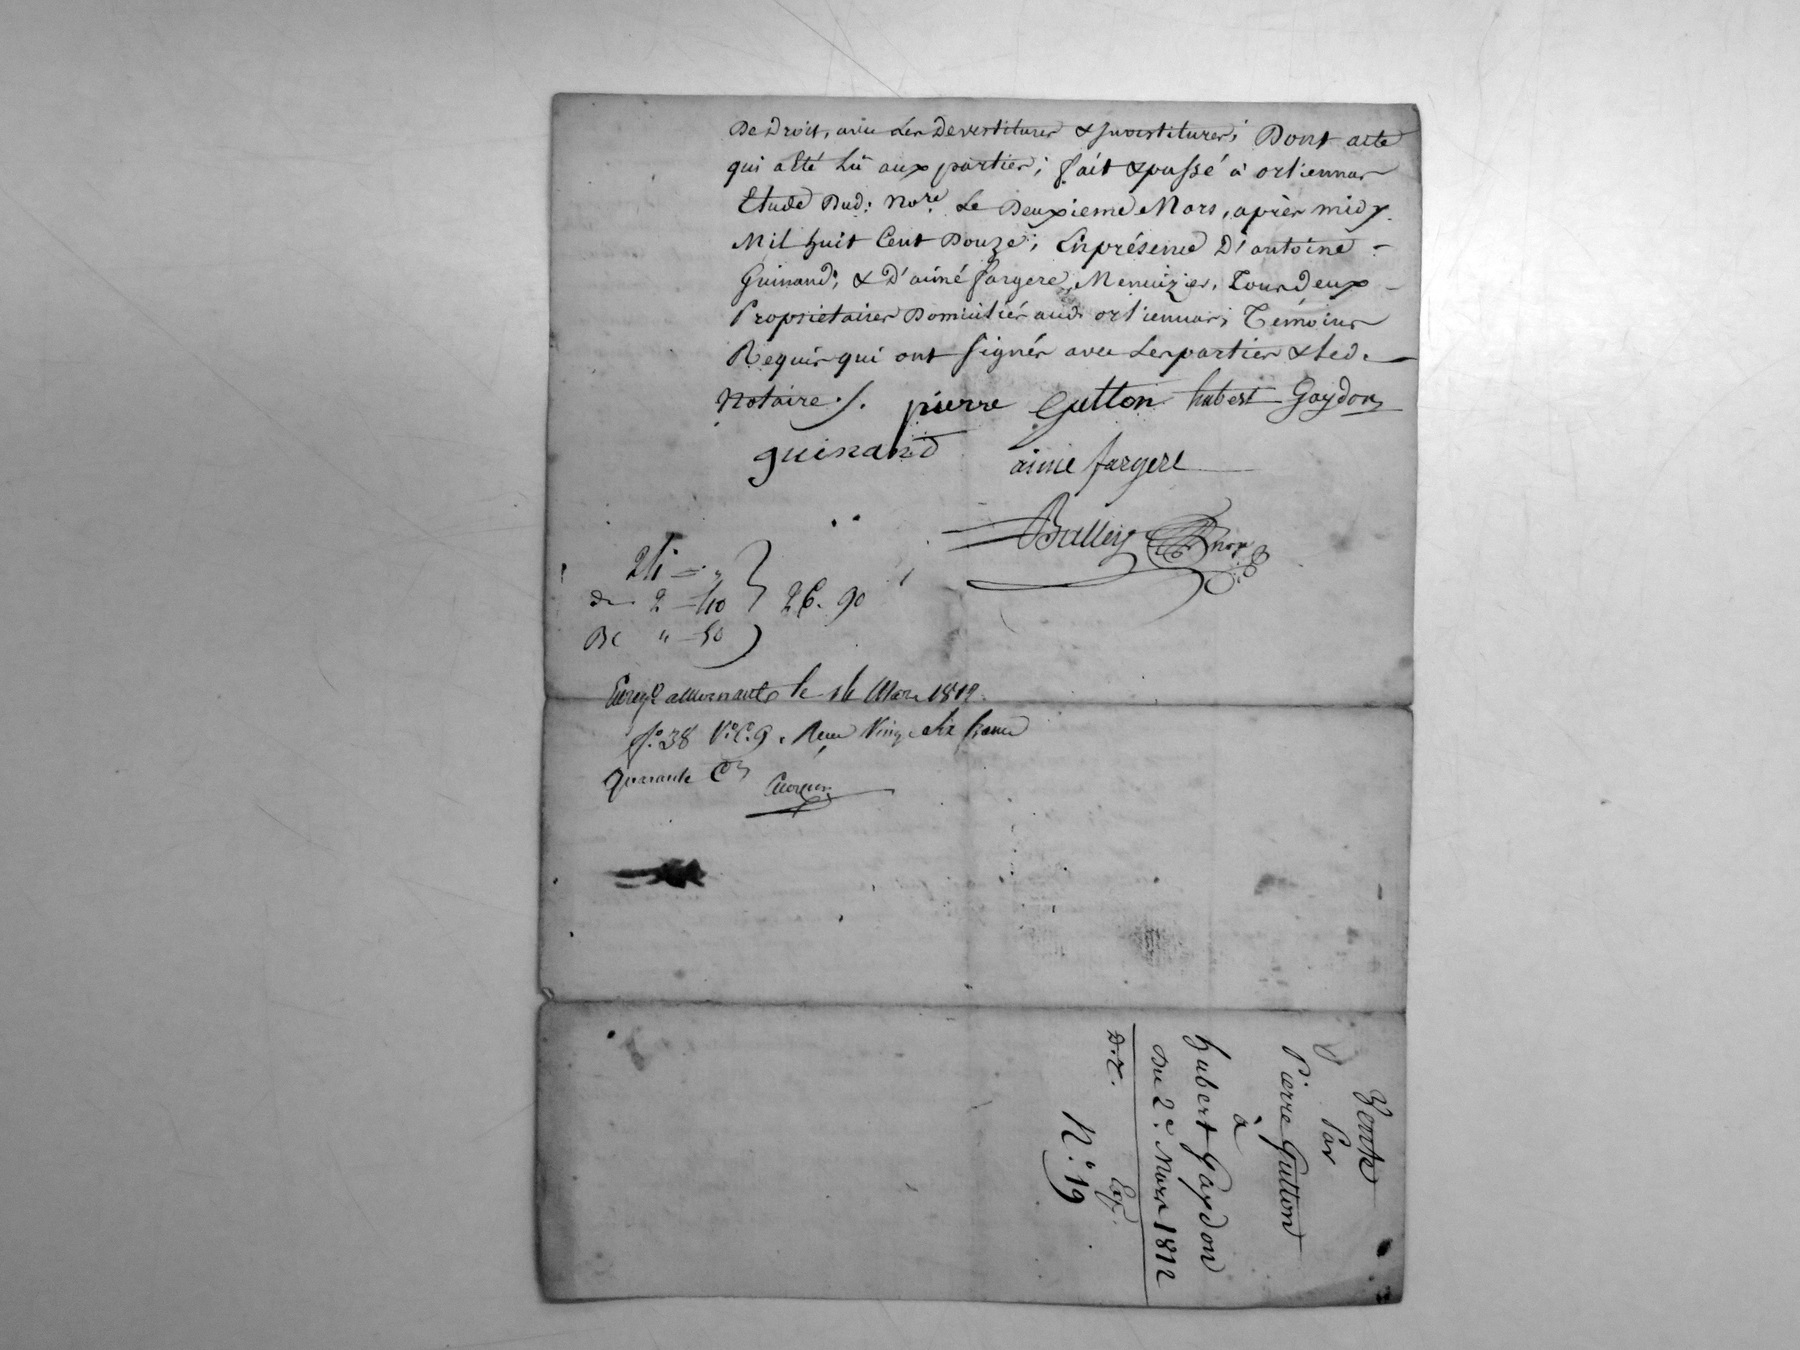 De Droit, avec Les Devestitures & Investitures; Dont acte
qui a été Lû aux parties; fait & passé à ortiennas
Etude Dud: Nore. Le Deuxieme Mars, après midy
Mil huit Cent Douze; En présence D'antoine
Guinand; & D'aimé fargere, Menuizier, Tous deux
Propriétaires Domiciliés aud. ortiennas; Témoins
Requis qui ont signés avec Les parties & Led.
Notaire ./. pierre Gutton hubert Gaydon
guinand aimé fargere
Balley nore
24 = "
De 2 - 40 } 26. 90
Be " - 50
Enregé le 14 Mars 1812
fo. 38 Vo. C. 9. Reçu Vingt six francs
quarante Cs
Vente
Par
Pierre Gutton
à
hubert Gaydon
Du 2e. Mars 1812
D.T. Exp.
N.o 19